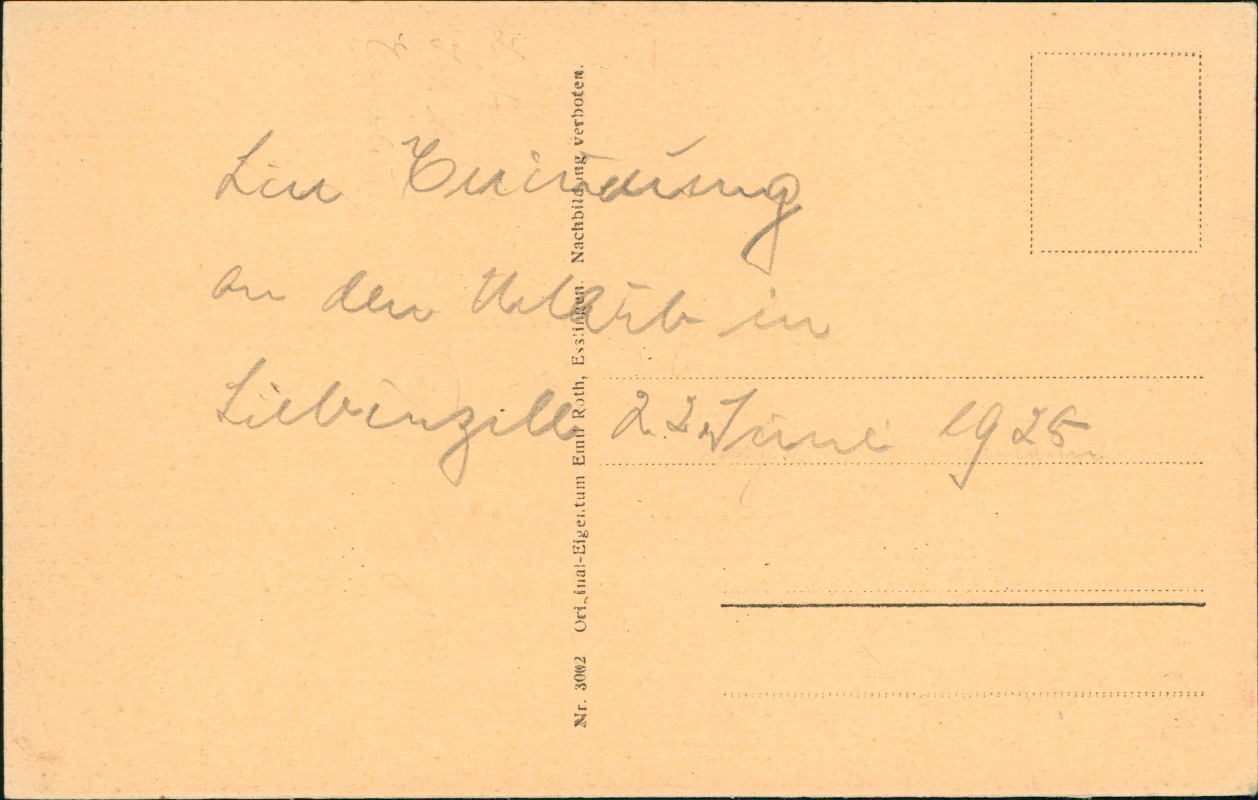 an den Urlaub in
Liebenzell 22. Juni 1925
Nr. 3002 Original-Eigentum Emil Roth, Esslingen. Nachbildung verboten.